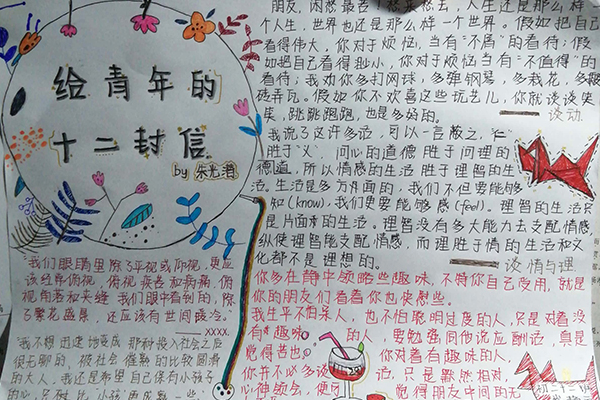 给青年的
十二封信
by 朱光潜
个人生,世界也还是那么样一个世界。假如把自己
看得伟大,你对于烦恼,当有“不屑”的看待;假
如把自己看得渺小,你对于烦恼当有“不值得”的
看待;我劝你多打网球,多弹钢琴,多栽花,多搬
砖弄瓦。假如你不欢喜这些玩艺儿,你就谈谈笑
笑,跳跳跑跑,也是多好的。
—— 谈动
我说了这许多话,可以一言蔽之,“仁”
胜于“义”,问心的道德胜于问理的
德道,所以情感的生活胜于理智的生
活。生活是多方面的,我们不但要能够
知(know),我们更要能够感(feel)。理智的生活只
是片面的生活。理智没有多大能力去支配情感,
纵使理智能支配情感,而理胜于情的生活和文
化都不是理想的。
—— 谈情与理
你多在静中领略些趣味,不特你自己受用,就是
你的朋友们看着你也快慰些。
我生平不怕呆人,也不怕聪明过度的人,只是对着没
有趣味的人,要勉强同他说应酬话,真是
觉得苦也。你对着有趣味的人,
你并不必多谈话,只是默然相对,
心领会,便觉得朋友中间的无
我们眼睛里除了平视或仰视,更应
该经常俯视,俯视疾苦和病痛,俯
视角落和夹缝。我们眼中看到的,除
了繁花盛景,还应该有世间暖冷。
—— xxxx.
我不想迅速地变成那种投入社会之后
很无聊的,被社会催熟的比较圆滑
的大人。我还是希望自己保有小孩子